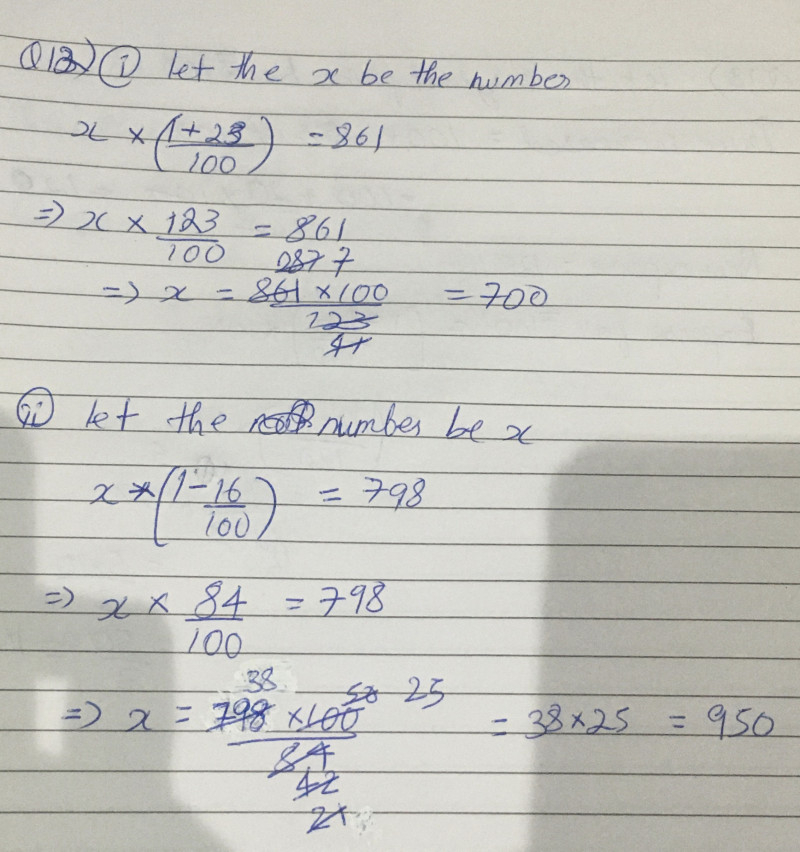 Q13) (i) let the x be the number
x × (1+23/100) = 861
⇒ x × 123/100 = 861
287 7
⇒ x = 861 × 100 / 123 = 700
41
(ii) let the number be x
x × (1 - 16/100) = 798
⇒ x × 84/100 = 798
38 50 25
⇒ x = 798 × 100 / 84 = 38 × 25 = 950
42
21